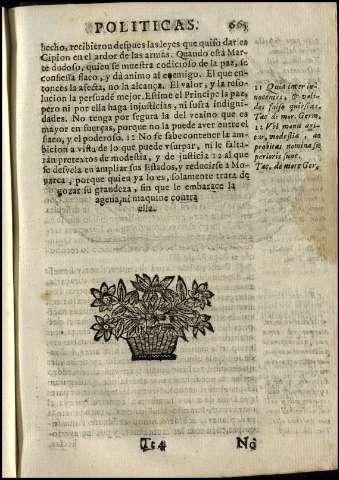 POLITICAS. 665
hecho, recibieron despues las leyes que quiso darles
Cipion en el ardor de las armas. Quando està Mar-
te dudoso, quien se muestra codicioso de la paz, se
confiessa flaco, y dà animo al enemigo. El que en-
tonces la afecta, no la alcança. El valor, y la reso-
lucion la persuade mejor. Estime el Principe la paz,
pero ni por ella haga injusticias, ni sufra indigni-
dades. No tenga por segura la del vezino que es
mayor en fuerças, porque no la puede aver entre el
flaco, y el poderoso. 11 No se sabe contener la am-
bicion a vista de lo que puede vsurpar, ni le falta-
ràn pretextos de modestia, y de justicia 12 al que
se desvela en ampliar sus Estados, y reducirse à Mo-
narca, porque quien ya lo es, solamente trata de
gozar su grandeza, sin que le embarace la
agena, ni maquine contra
ella.
11 Quia inter in-
nocentes, & vali-
dos falsò quiescas.
Tac. de mor. Germ.
12 Vbi manu agi-
tur, modestia, ac
probitas nomina su-
perioris sunt.
Tac. de mor. Ger.
Tt 4
No